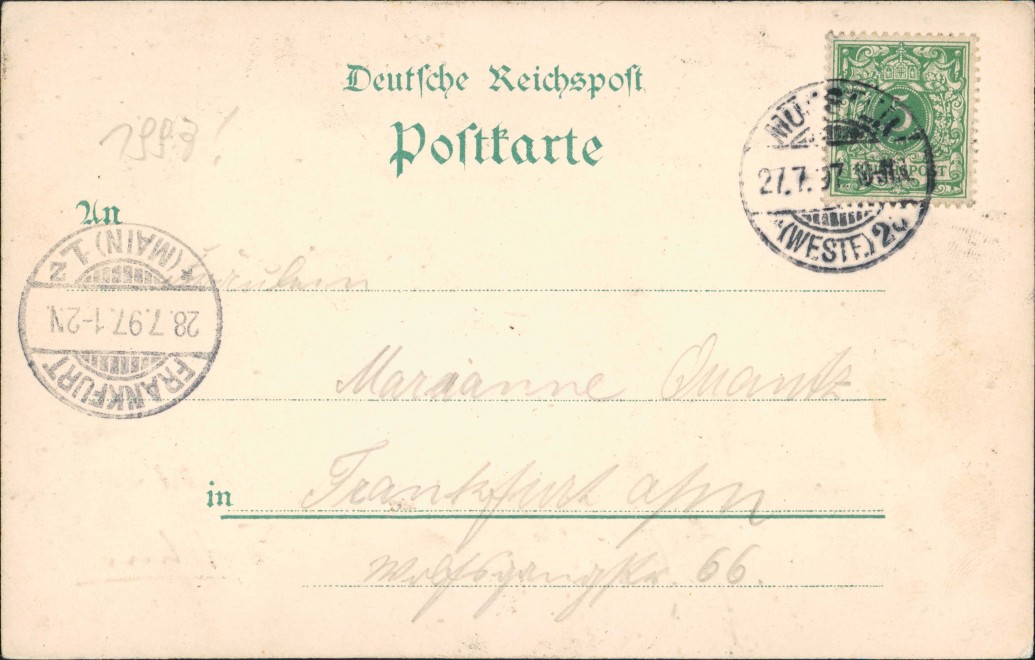 Deutsche Reichspost
Postkarte
1993!
5
REICHSPOST
27.7.97
(WESTF.)
An
FRANKFURT
28.7.97.1-2N.
*(MAIN) 1 z
Fräulein
Marianne Quantz
in Frankfurt a/m
Wolfsgangstr. 66.